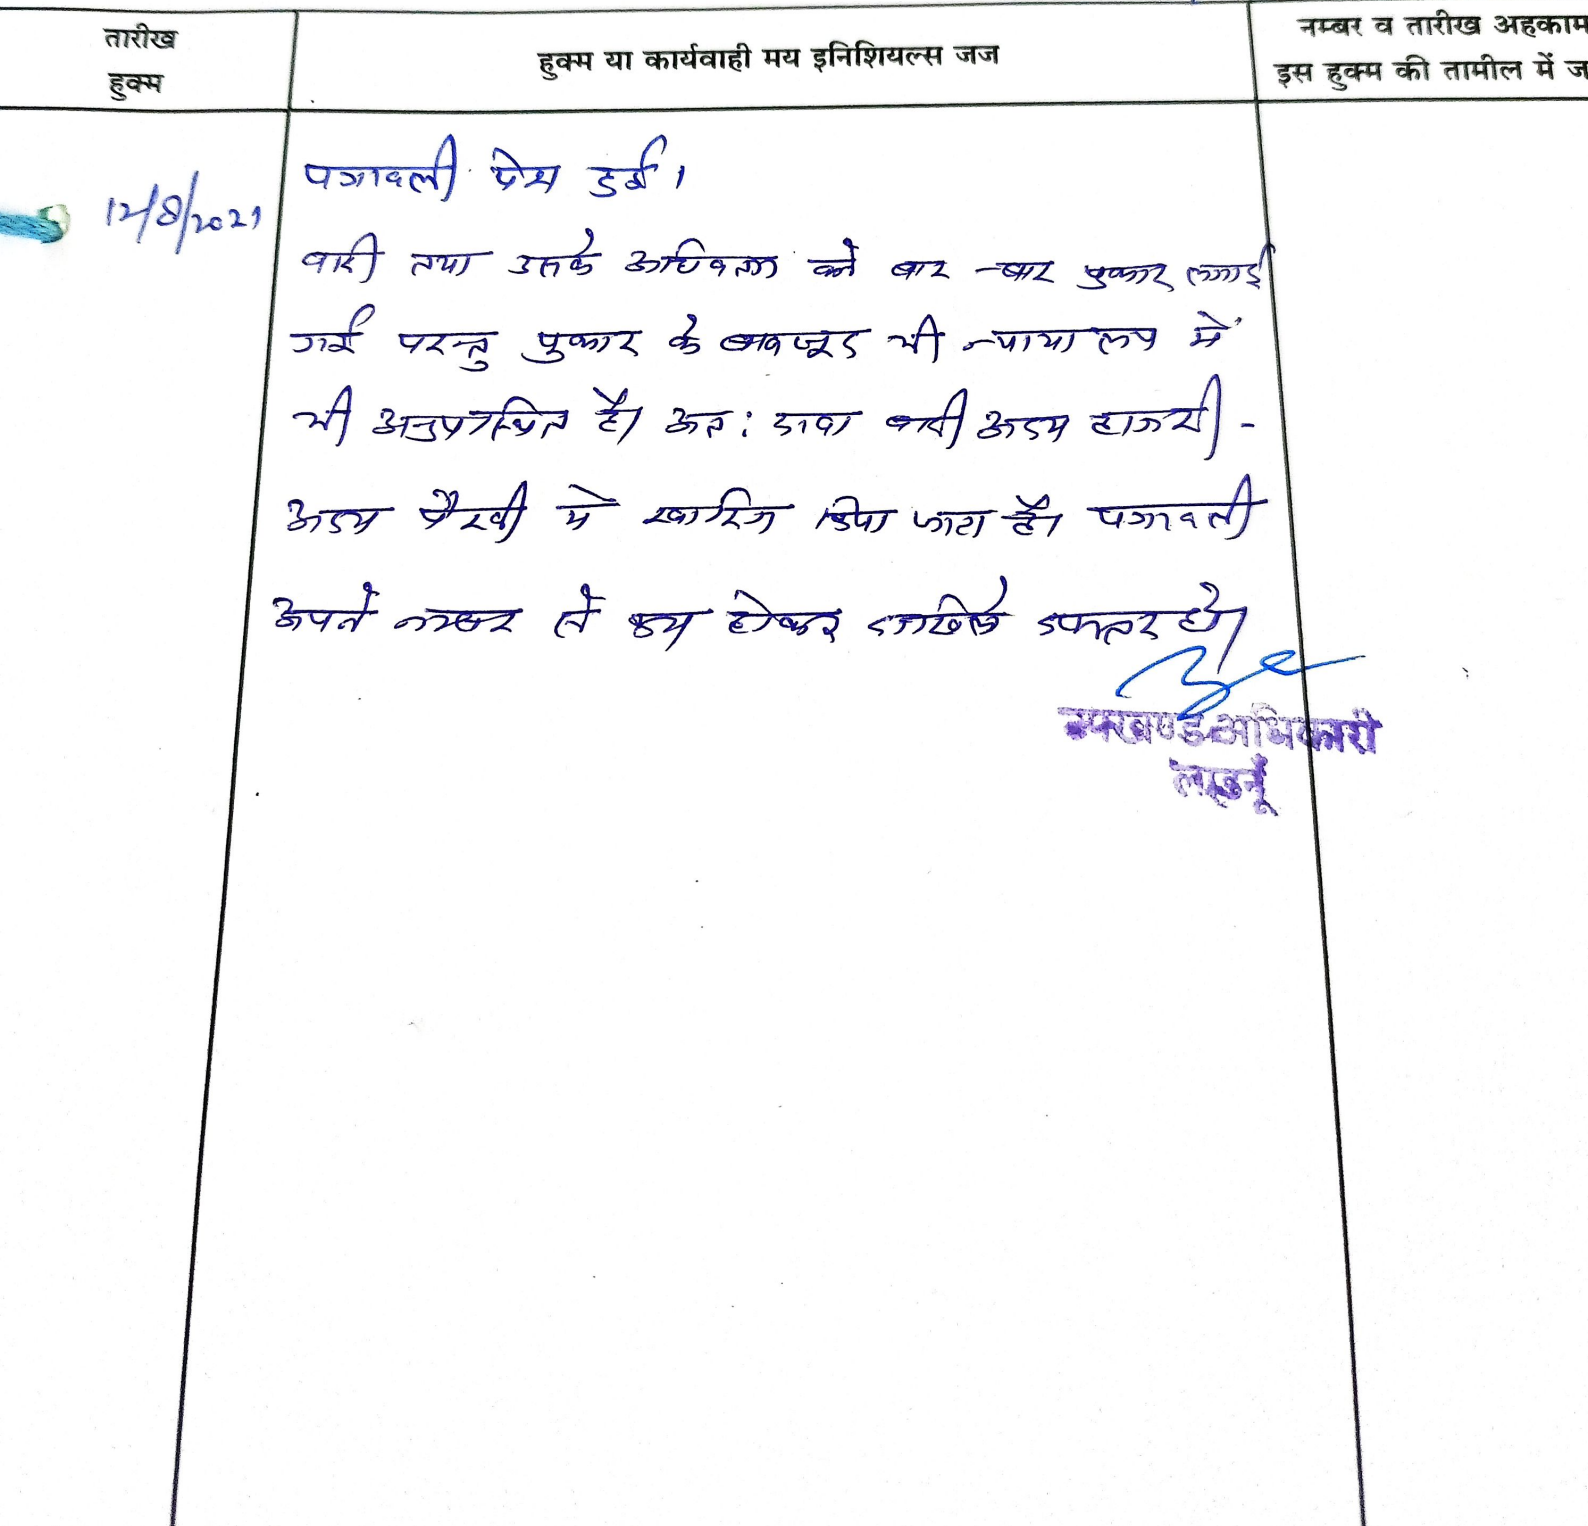 तारीख
हुक्म
हुक्म या कार्यवाही मय इनिशियल्स जज
नम्बर व तारीख अहकाम
इस हुक्म की तामील में ज
12/8/2021
पत्रावली पेश हुई।
वादी तथा उसके अधिवक्ता को बार-बार पुकार लगाई
गई परन्तु पुकार के बावजूद भी न्यायालय में
भी अनुपस्थित है। अतः दावा वादी अदम हाजरी -
अदम पैरवी में खारिज किया जाता है। पत्रावली
अपने नम्बर से कम होकर दाखिल दफ्तर हो।
उपखण्ड अधिकारी
लाडनूँ